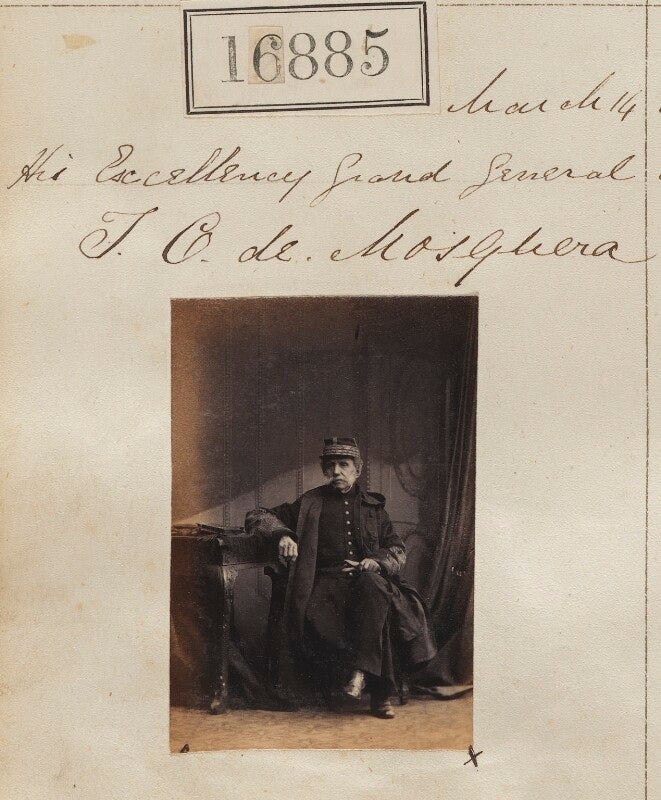 16885
March 14
His Excellency Grand General
T. C. de. Mosquera